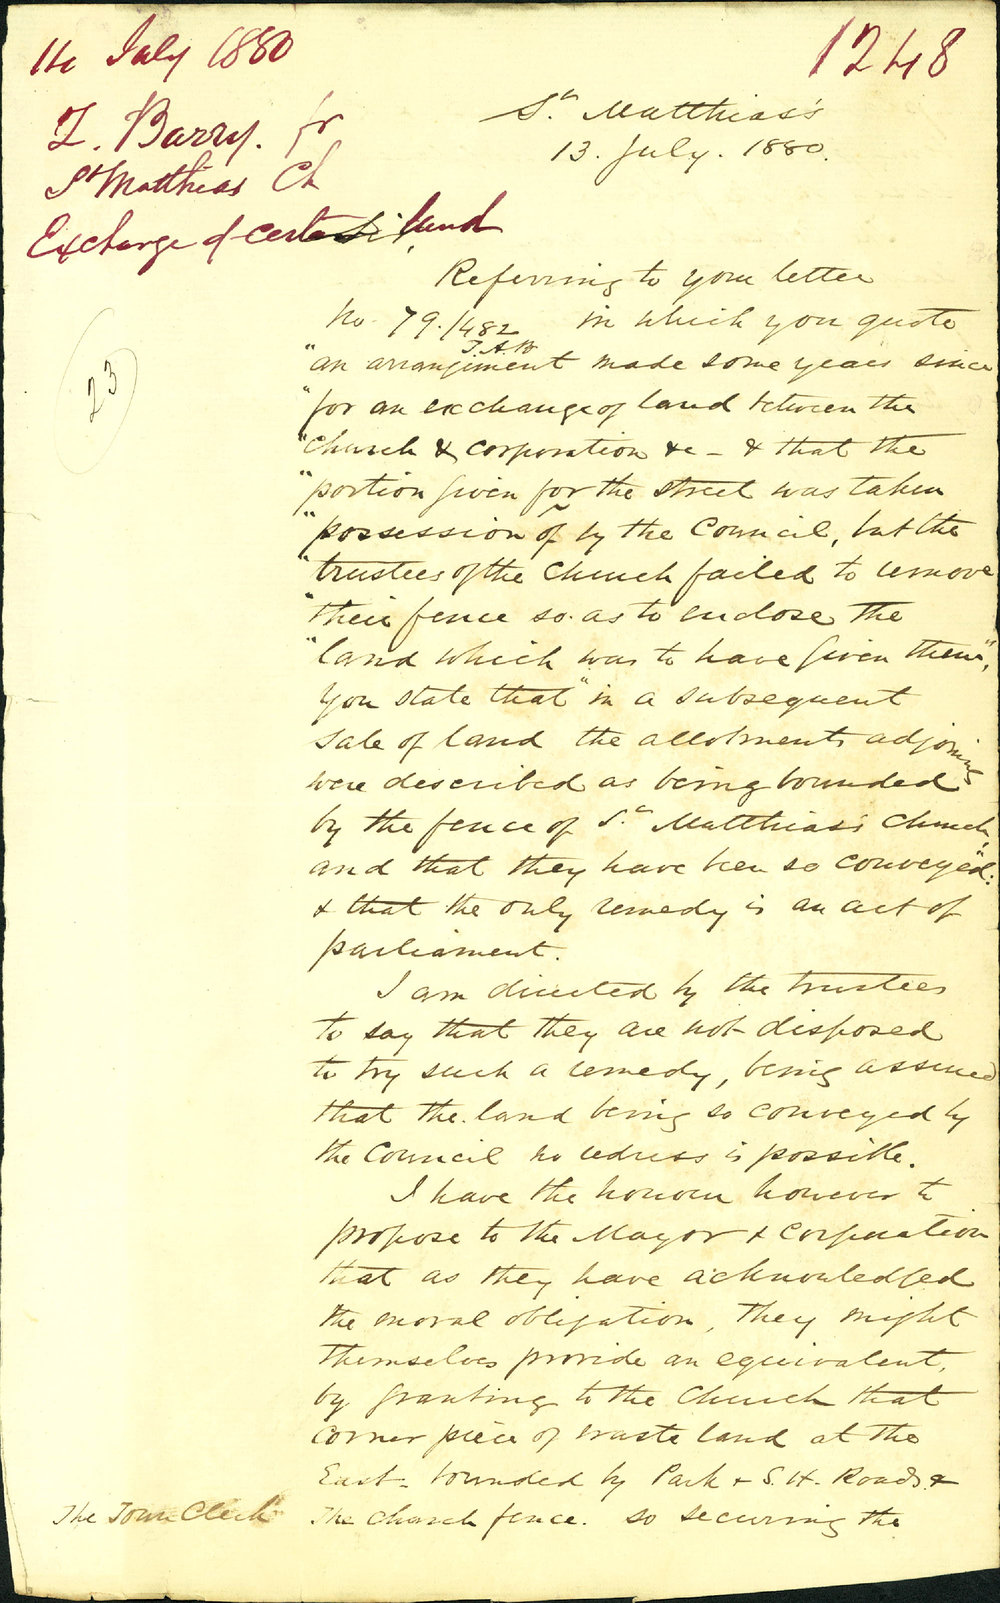 14 July 1880
1248
Z. Barry. fr
St Matthias Ch
Exchange of certain land
St. Matthias's
13. July. 1880.
Referring to your letter
No. 79./482 in which you quote
T.A.B
"an arrangement made some years since
"for an exchange of land between the
"Church & corporation &c – & that the
"portion given for the street was taken
"possession of by the Council, but the
"trustees of the Church failed to remove
"their fence so as to enclose the
"land which was to have given them",
you state that "in a subsequent
sale of land the allotments adjoining
were described as being bounded
by the fence of St. Matthias's Church,
and that they have been so conveyed":
& that the only remedy is an act of
parliament.
I am directed by the trustees
to say that they are not disposed
to try such a remedy, being assured
that the land being so conveyed by
the Council no redress is possible.
I have the honour however to
propose to the Mayor & corporation
that as they have acknowledged
the moral obligation, they might
themselves provide an equivalent,
by granting to the Church that
corner piece of waste land at the
East – bounded by Park & S.H. Roads &
the Church fence. so securing the
The Town Clerk
23